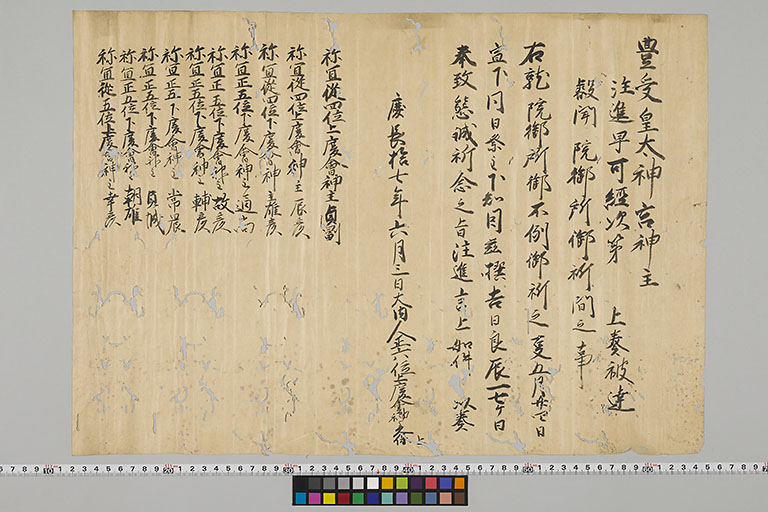 豊受皇大神宮神主
注進早可経次第 上奏被達
叡聞 院御所御祈間之事
右 院御所御不例御祈之 五月廿 日
宣下同日祭主下知同 撰吉日良辰一七ケ日
奉致懇誠祈念之旨注進言上如件 以奏
慶長拾七年六月三日大内人 六位上度会神主 上
祢宜従四位上度會神主貞副
祢宜従四位上度會神主辰彦
祢宜従四位下度會神主雄彦
祢宜正五位下度會神主通尚
祢宜正五位下度會神主 彦
祢宜正五位下度會神主 彦
祢宜正五位下度會神主常晨
祢宜正五位下度會神主貞誠
祢宜正五位下度會神主朝雄
祢宜従五位上度會神主幸彦